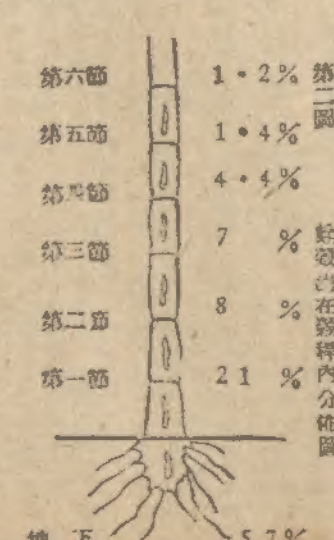 第六節 1・2%
第五節 1・4%
第四節 4・4%
第三節 7 %
第二節 8 %
第一節 21 %
地下 57%
第二圖
在穀稈內分佈圖